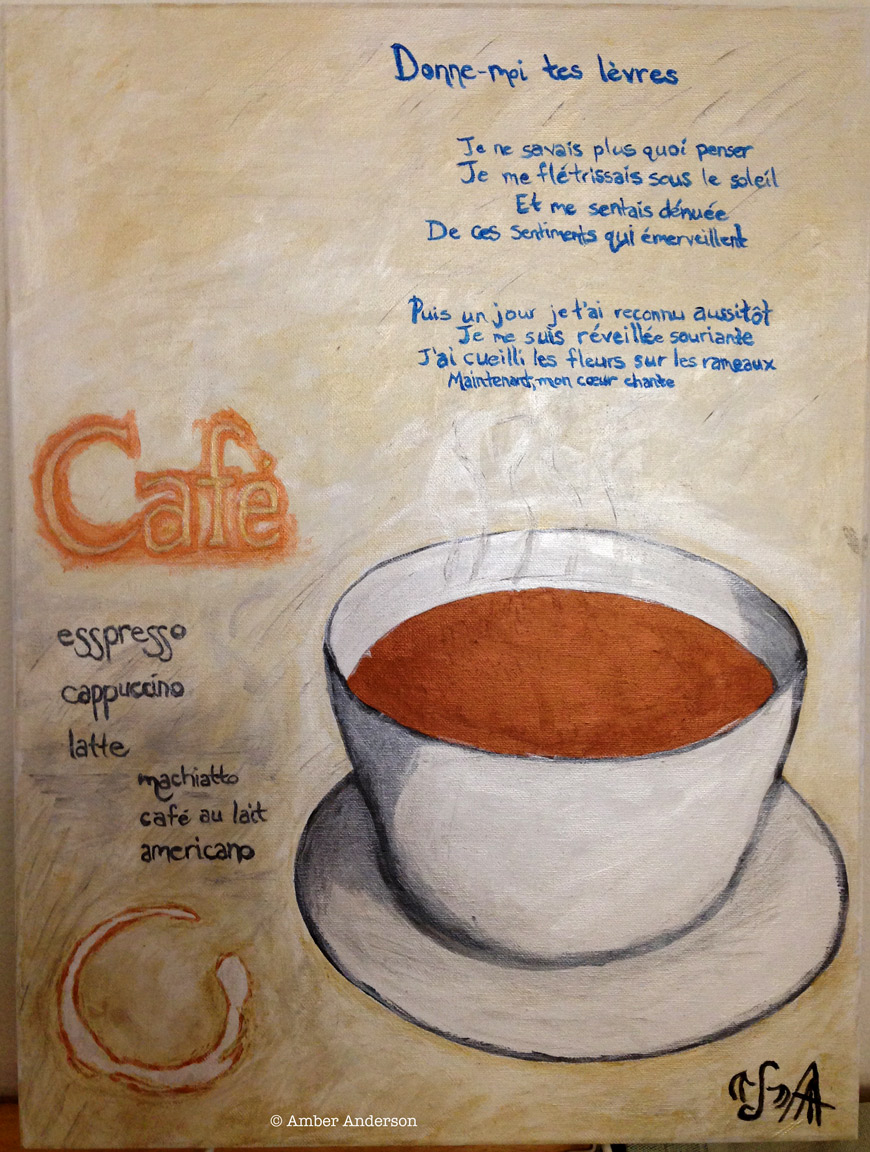 Donne-moi tes lèvres
Je ne savais plus quoi penser
Je me flétrissais sous le soleil
Et me sentais dénuée
De ces sentiments qui émerveillent
Puis un jour je t'ai reconnu aussitôt
Je me suis réveillée souriante
J'ai cueilli les fleurs sur les rameaux
Maintenant, mon cœur chante
Café
esspresso
cappuccino
latte
machiatto
café au lait
americano
© Amber Anderson